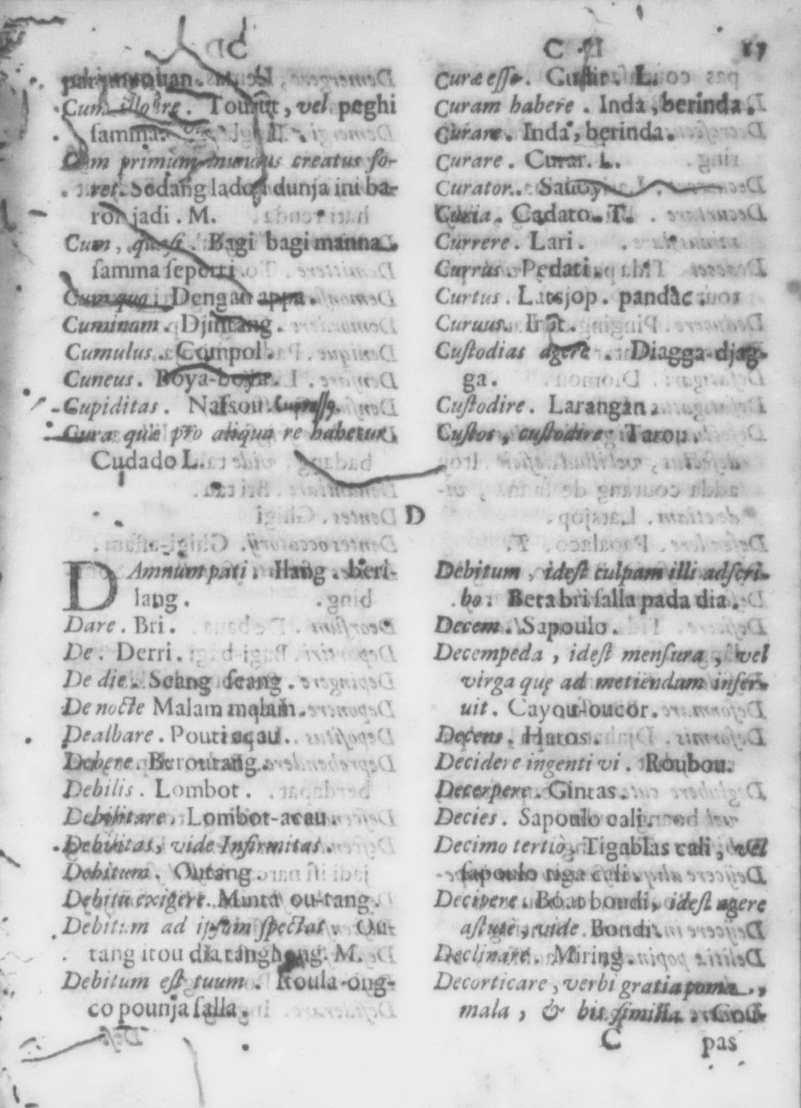 C U 17
Cum illo ire. Tourut, vel peghi
samma.
Cum primùm mundus creatus fo-
ret. Sedang ladoga dunja ini ba-
ron jadi. M.
Cum, quasi. Bagi bagi manna.
samma seperti.
Cum quo. Dengan appa.
Cuminam. Djintang.
Cumulus. Compol.
Cuneus. Boya-boya.
Cupiditas. Nafsou.
Cura quæ pro aliqua re habetur.
Cudado L.
Curæ esse. L.
Curam habere. Inda, berinda.
Curare. Inda, berinda.
Curare. Curar. L.
Curator.
Curia. Cadato. T.
Currere. Lari.
Currus. Pedati.
Curtus. Latsjop. pandac.
Curuus.
Custodias agere. Diagga-djag-
ga.
Custodire. Larangan.
Custos, custodire. Tarou.
D
DAmnum pati. Ilang. beri-
lang.
Dare. Bri.
De. Derri.
De die. Seang seang.
De nocte Malam malam.
Dealbare. Pouti acau.
Debere. Beroutang.
Debilis. Lombot.
Debilitare. Lombot-acau.
Debilitas, vide Infirmitas.
Debitum. Outang.
Debitū exigere. Minta ou-tang.
Debitum ad ipsum spectat. Ou-
tang itou dia tanghong. M.
Debitum est tuum. Roula-ong-
co pounja salla.
Debitum, idest culpam illi adscri-
bo. Beta bri salla pada dia.
Decem. Sapoulo.
Decempeda, idest mensura, vel
virga quę ad metiendam inser-
uit. Cayou-oucor.
Decens. Hatos.
Decidere ingenti vi. Roubou.
Decerpere. Gintas.
Decies. Sapoulo cali.
Decimo tertiò, Tigablas cali, vel
sapoulo tiga cali.
Decipere. Boat boudi, idest agere
astutè, vide Boudi.
Declinare. Miring.
Decorticare, verbi gratia poma,
mala, & his similia. Cou-
C pas